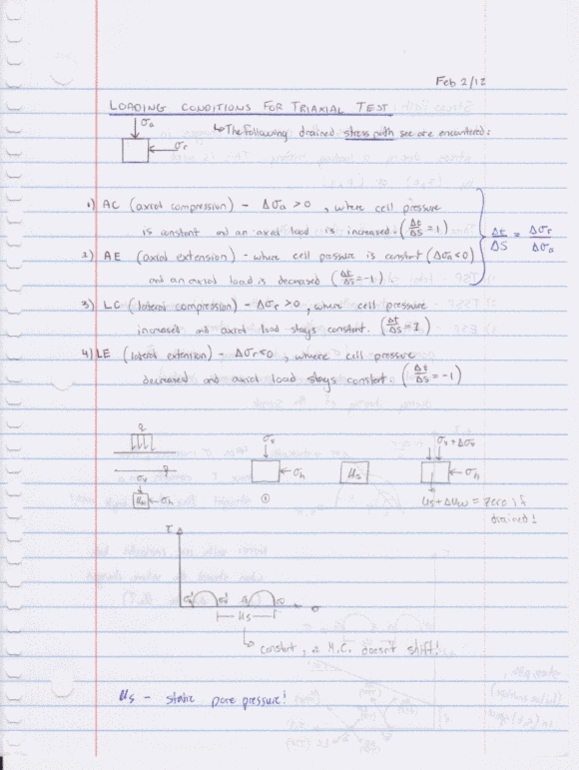 Feb 2/12
LOADING CONDITIONS FOR TRIAXIAL TEST:
σa
↳ The following drained stress path see are encountered:
σr
1) AC (axial compression) - Δσa > 0, where cell pressure
is constant and an axial load is increased. (Δt/ΔS = 1)
Δt/ΔS = Δσr/Δσa
2) AE (axial extension) - where cell pressure is constant (Δσa < 0)
and an axial load is decreased (Δt/ΔS = -1)
3) LC (lateral compression) - Δσr > 0, where cell pressure
increased and axial load stays constant. (Δt/ΔS = 1)
4) LE (lateral extension) - Δσr < 0, where cell pressure
decreased and axial load stays constant. (Δt/ΔS = -1)
q
σv
σv + Δσv
σv
σh
Us
σh
σh
Us + ΔUw = zero if
drained!
τ
σ
Us
↳ constant, M.C. doesn't shift!
Us - static pore pressure!